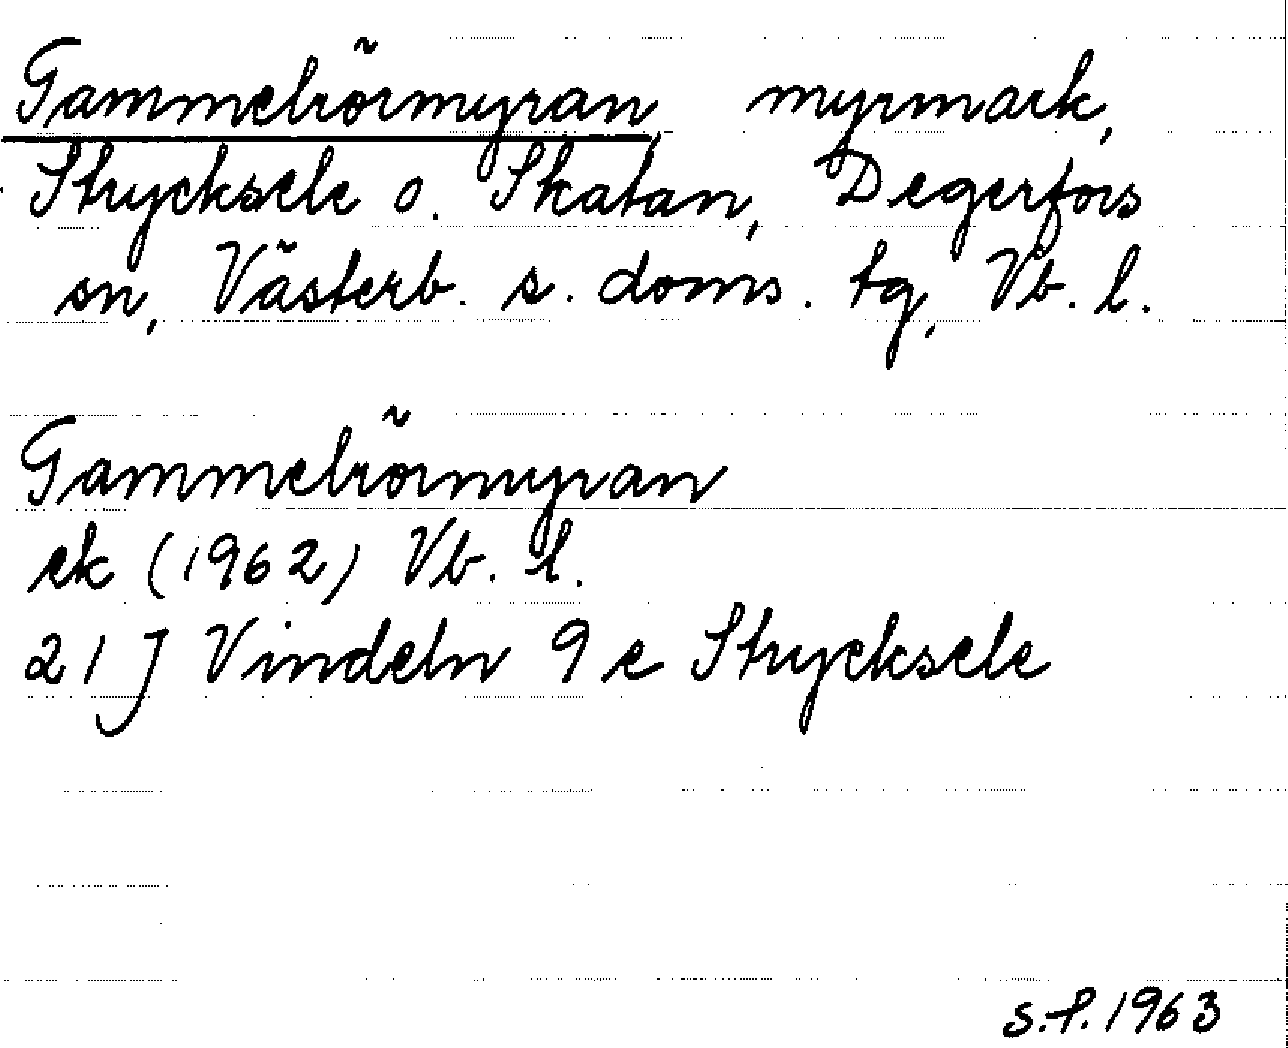 Gammelrörmyran, myrmark,
Strycksele o. Skatan, Degerfors
sn, Västerb. s. doms. tg, Vb. l.
Gammelrörmyran
ek (1962) Vb. l.
21 J Vindeln 9 e Strycksele
s.f. 1963